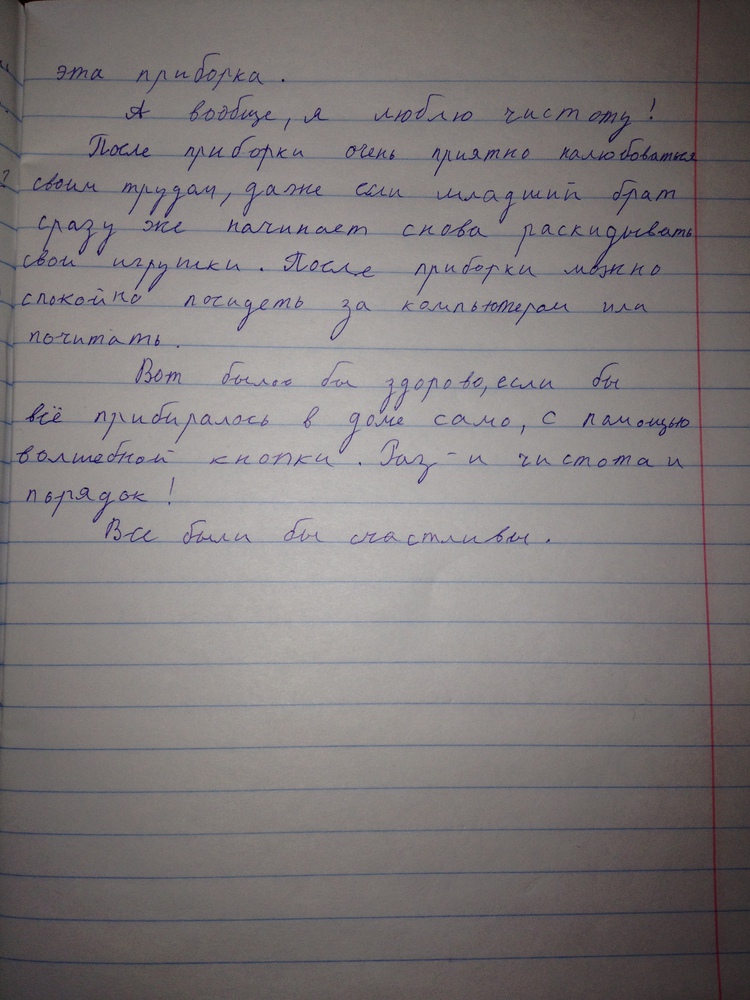 эта приборка.
А вообще, я люблю чистоту!
После приборки очень приятно налюбоваться
своим трудом, даже если младший брат
сразу же начинает снова раскидывать
свои игрушки. После приборки можно
спокойно посидеть за компьютером или
почитать.
Вот было бы здорово, если бы
всё прибиралось в доме само, с помощью
волшебной кнопки. Раз - и чистота и
порядок!
Все были бы счастливы.